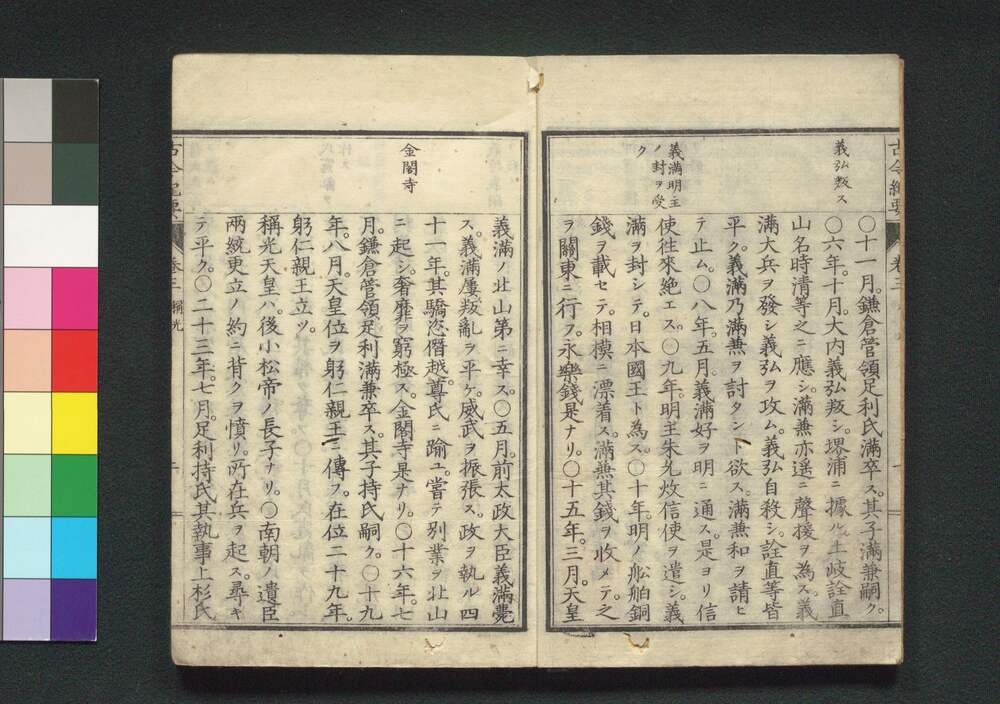 古今紀要
巻三
義弘叛ス
〇十一月。鎌倉管領足利氏滿卒ス。其子滿兼嗣ク。
〇六年。十月。大内義弘叛シ。堺浦ニ據ル。土岐詮直
山名時清等之ニ應シ。滿兼亦遥ニ聲援ヲ為ス。義
滿大兵ヲ發シ義弘ヲ攻ム。義弘自殺シ。詮直等皆
平ク。義滿乃滿兼ヲ討タント欲ス。滿兼和ヲ請ヒ
テ止ム。〇八年五月。義滿好ヲ明ニ通ス。是ヨリ信
義滿明主
ノ封ヲ受
ク
使徃來絶エス。〇九年。明主朱允炆信使ヲ遣シ。義
滿ヲ封シテ。日本國王ト為ス。〇十年。明ノ舩舶銅
錢ヲ載セテ。相模ニ漂着ス。滿兼其錢ヲ收メテ。之
ヲ關東ニ行フ。永樂錢是ナリ。〇十五年。三月。天皇
義滿ノ北山第ニ幸ス。〇五月。前太政大臣義滿薨
ス。義滿屢叛亂ヲ平ケ。威武ヲ振張ス。政ヲ執ル四
十一年。其驕恣僭越。尊氏ニ踰ユ。嘗テ別業ヲ北山
金閣寺
ニ起シ。奢靡ヲ窮極ス。金閣寺是ナリ。〇十六年。七
月。鎌倉管領足利滿兼卒ス。其子持氏嗣ク。〇十九
年。八月。天皇位ヲ躬仁親王ニ傳フ。在位二十九年。
躬仁親王立ツ。
稱光天皇ハ。後小松帝ノ長子ナリ。〇南朝ノ遺臣
兩統更立ノ約ニ背クヲ憤リ。所在兵ヲ起ス。尋キ
テ平ク。〇二十三年。七月。足利持氏其執事上杉氏
古今紀要
巻三
稱光